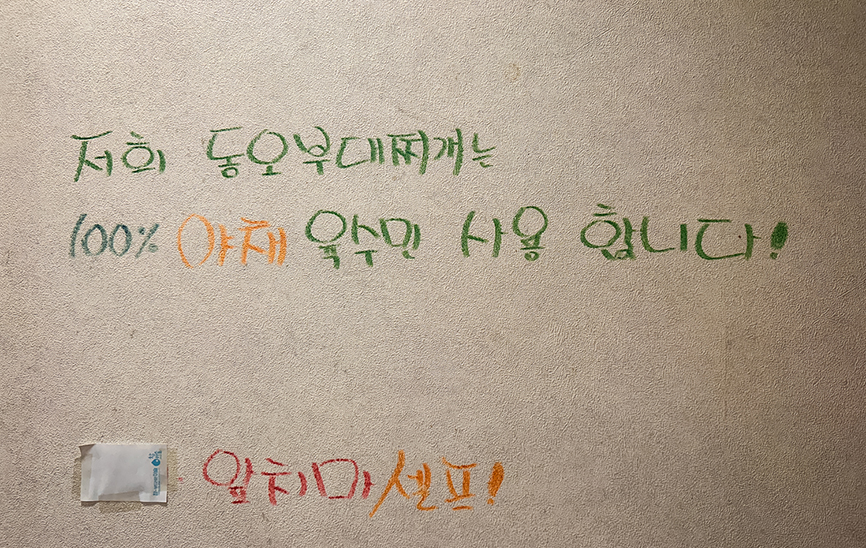 저희 동오부대찌개는
100% 야채 육수만 사용 합니다!
앞치마 셀프!